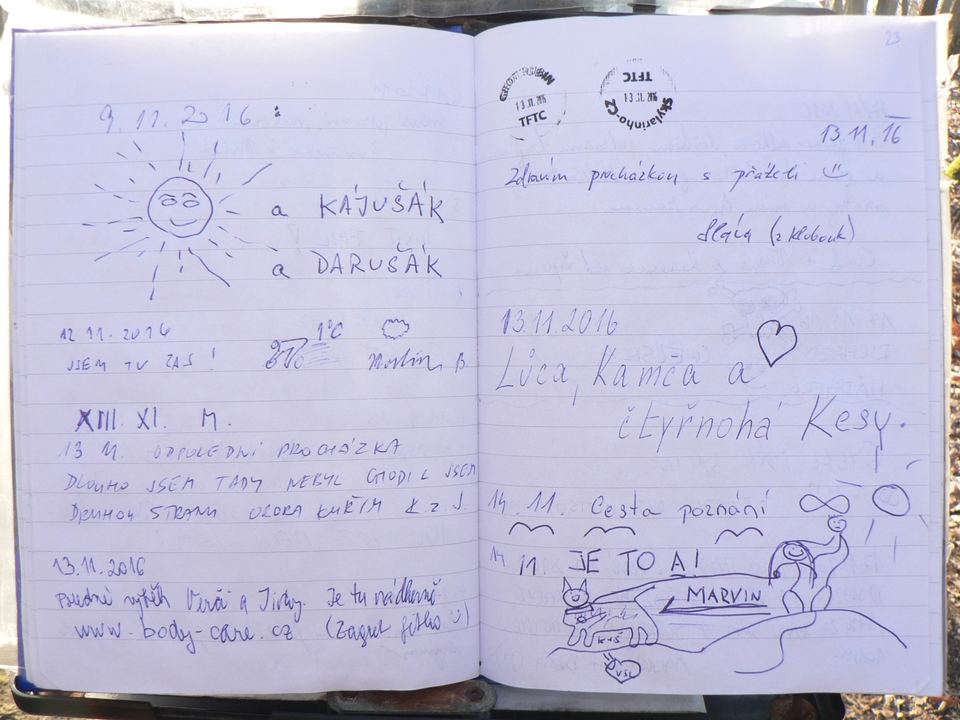 9.11.2016 :
a KÁJUŠÁK
a DARUŠÁK
12 11.2016
1°C
JSEM TU ZAS !
B.
XIII. XI. M.
13 11. ODPOLEDNÍ PROCHÁZKA
DLOUHO JSEM TADY NEBYL CHODIL JSEM
DRUHOU STRANU
13.11.2016
a Jirky. Je tu nádherně
www.body-care.cz
23
13.11.2016
TFTC
TFTC
13.11.2016
Skylarinho-CZ
13 11, 16
Zdravím procházkou s přáteli
(z Klobouk)
13.11.2016
Lůca, Kamča a
čtyřnohá Kesy.
14.11. Cesta poznání
14 11 JE TO A!
MARVIN